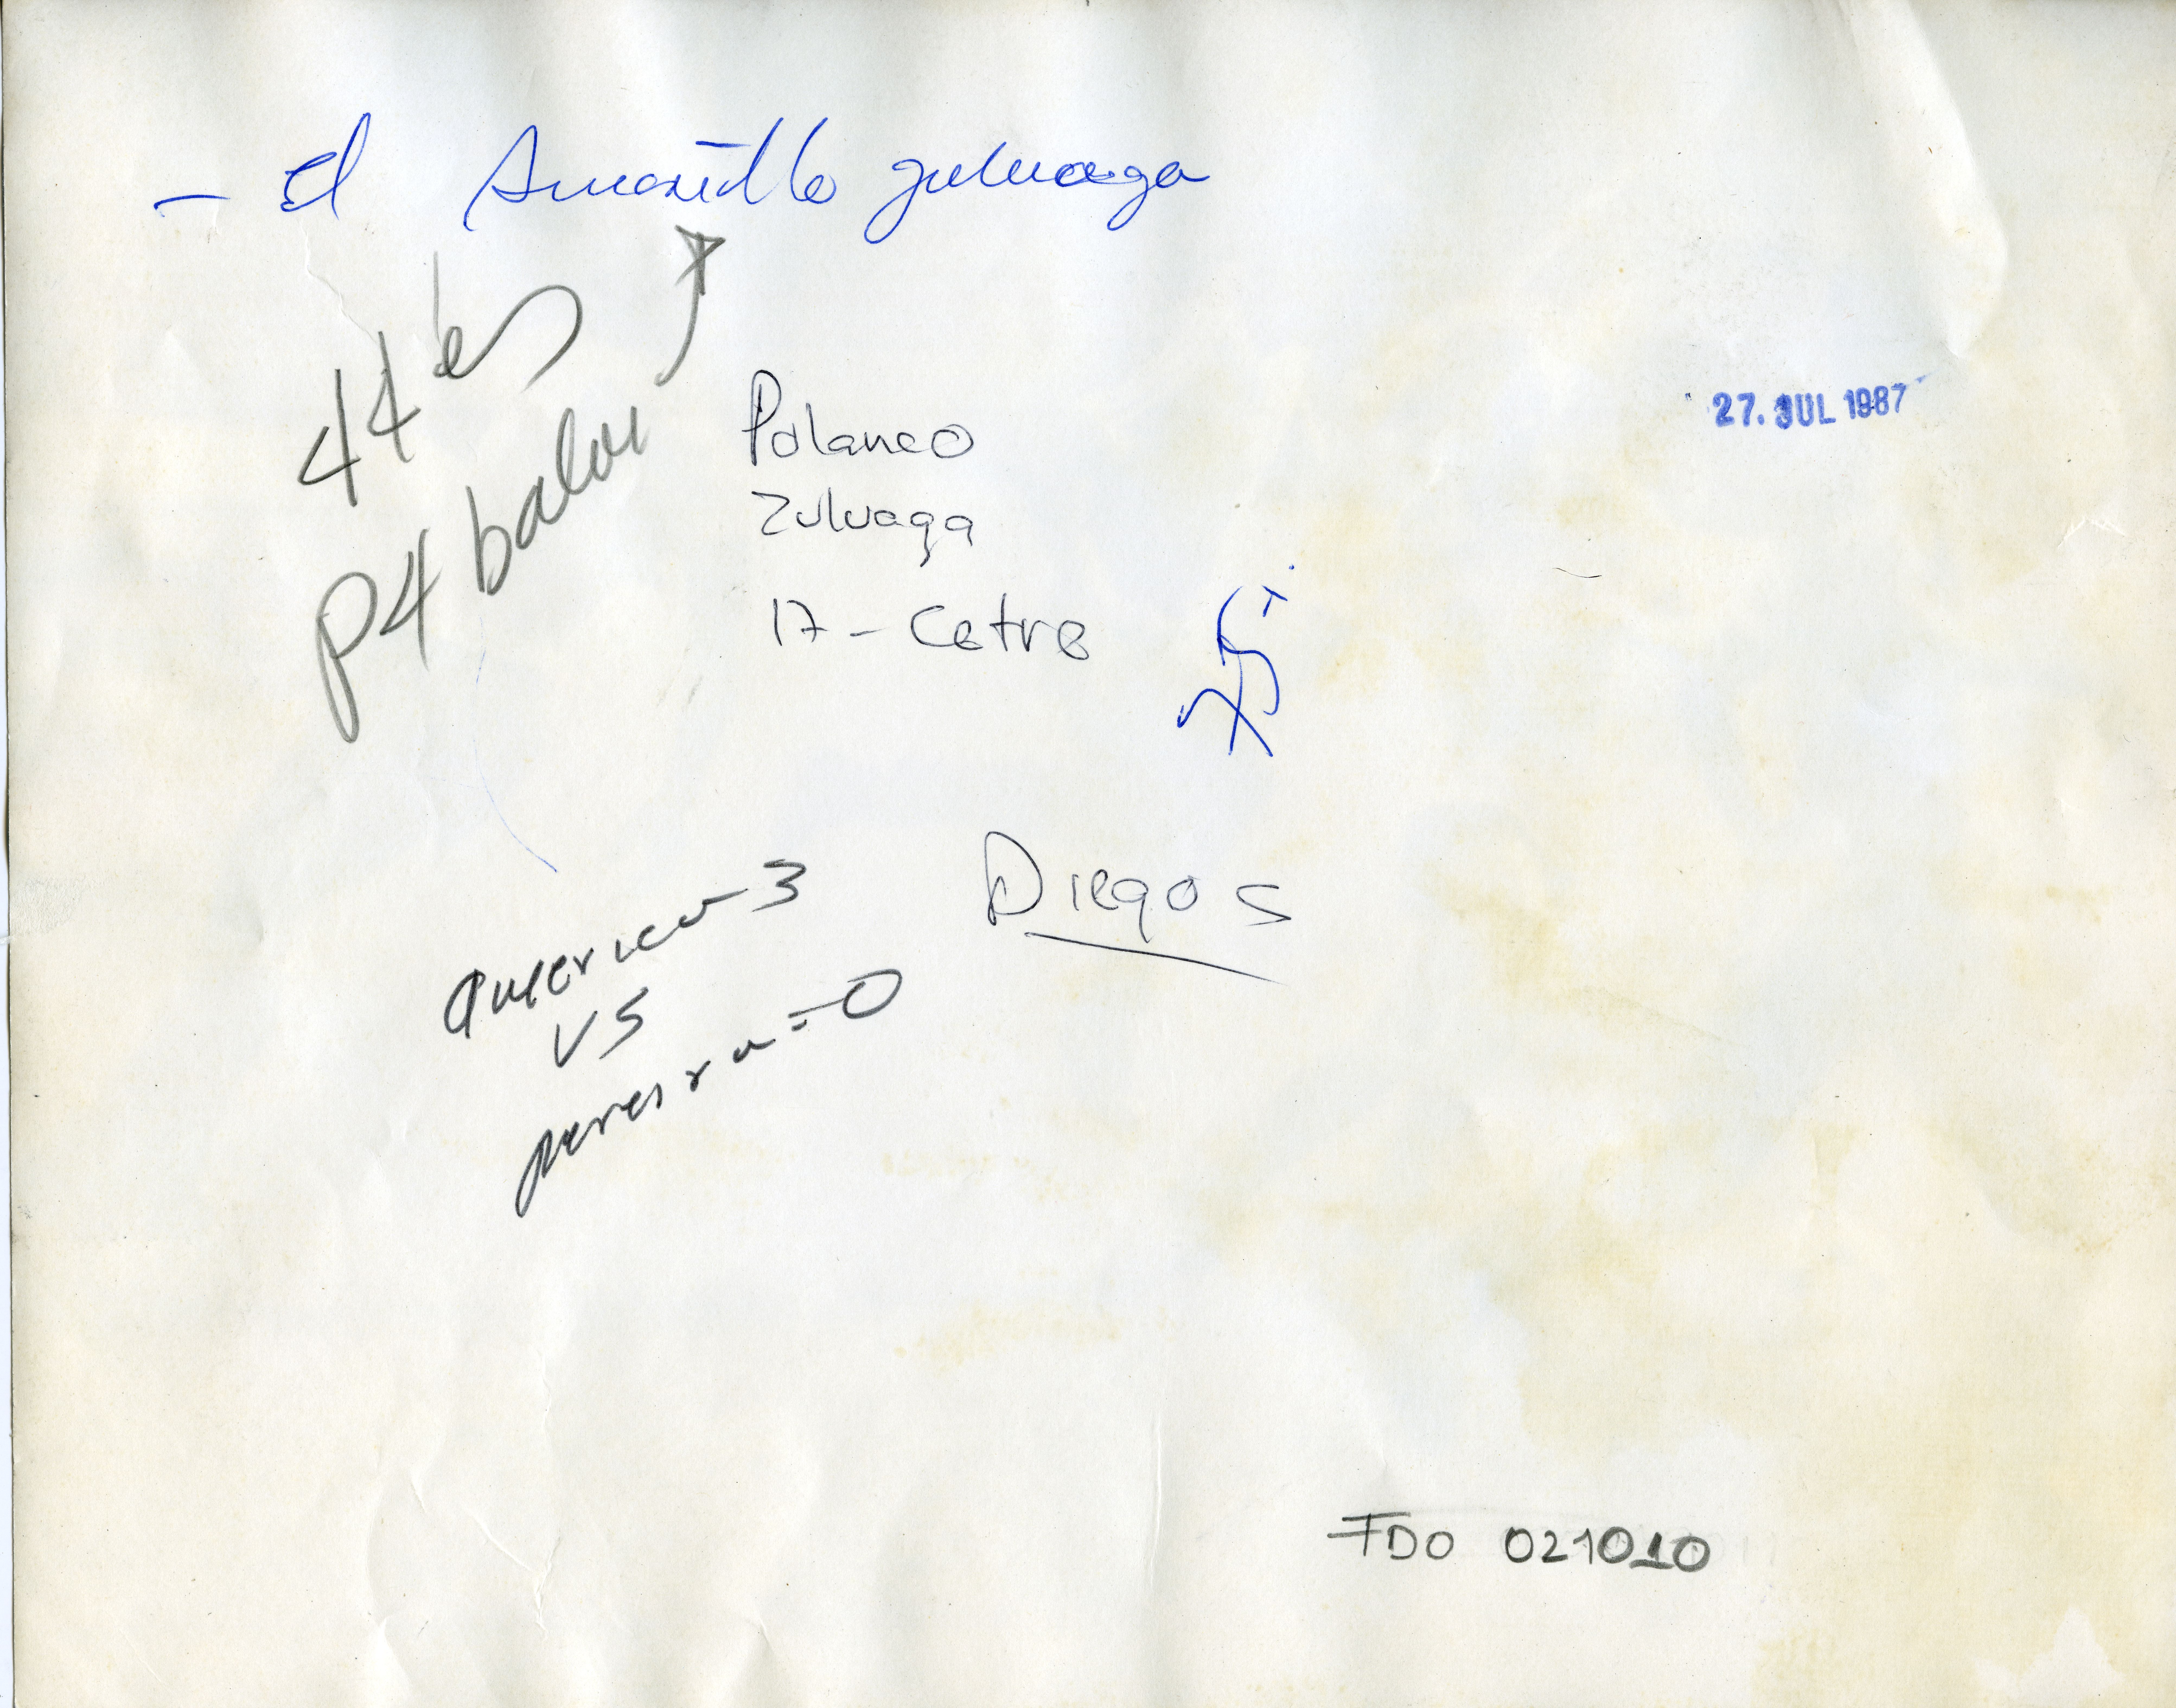 - El Amarillo Zuluaga
44
P4 balon
Polanco
Zuluaga
17 - Cetre
27. JUL 1987
Diego S
america - 3
VS
pereira = 0
FDO 021010